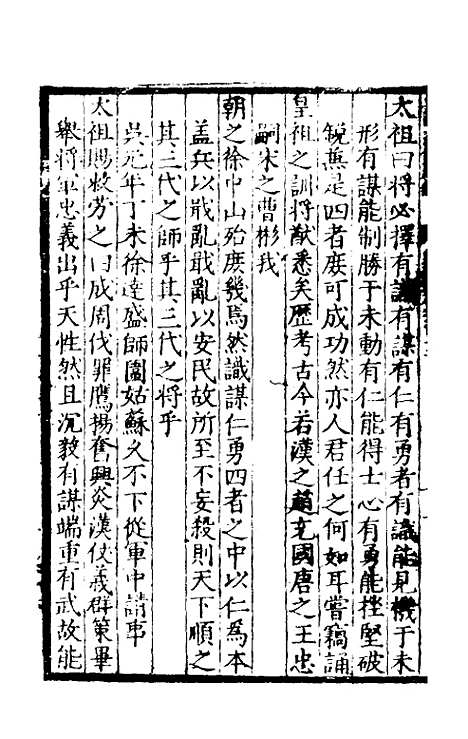 太祖曰將必擇有識有謀有仁有勇者有識能見機于未
形有謀能制勝于未動有仁能得士心有勇能摧堅破
銳兼是四者庶可成功然亦人君任之何如耳嘗稿誦
皇祖之訓將猷悉矣歷考古今若漢之趙充國唐之王忠
嗣宋之曹彬我
朝之徐中山殆庶幾焉然識謀仁勇四者之中以仁為本
盖兵以戢亂戢亂以安民故所至不妄殺則天下順之
其三代之師乎其三代之將乎
吳元年丁未徐達盛師圍姑蘇久不下從軍中請事
太祖賜敕勞之曰成周伐罪鷹揚奮興炎漢仗義群策畢
舉將軍忠義出乎天性然且沉毅有謀端重有武故能